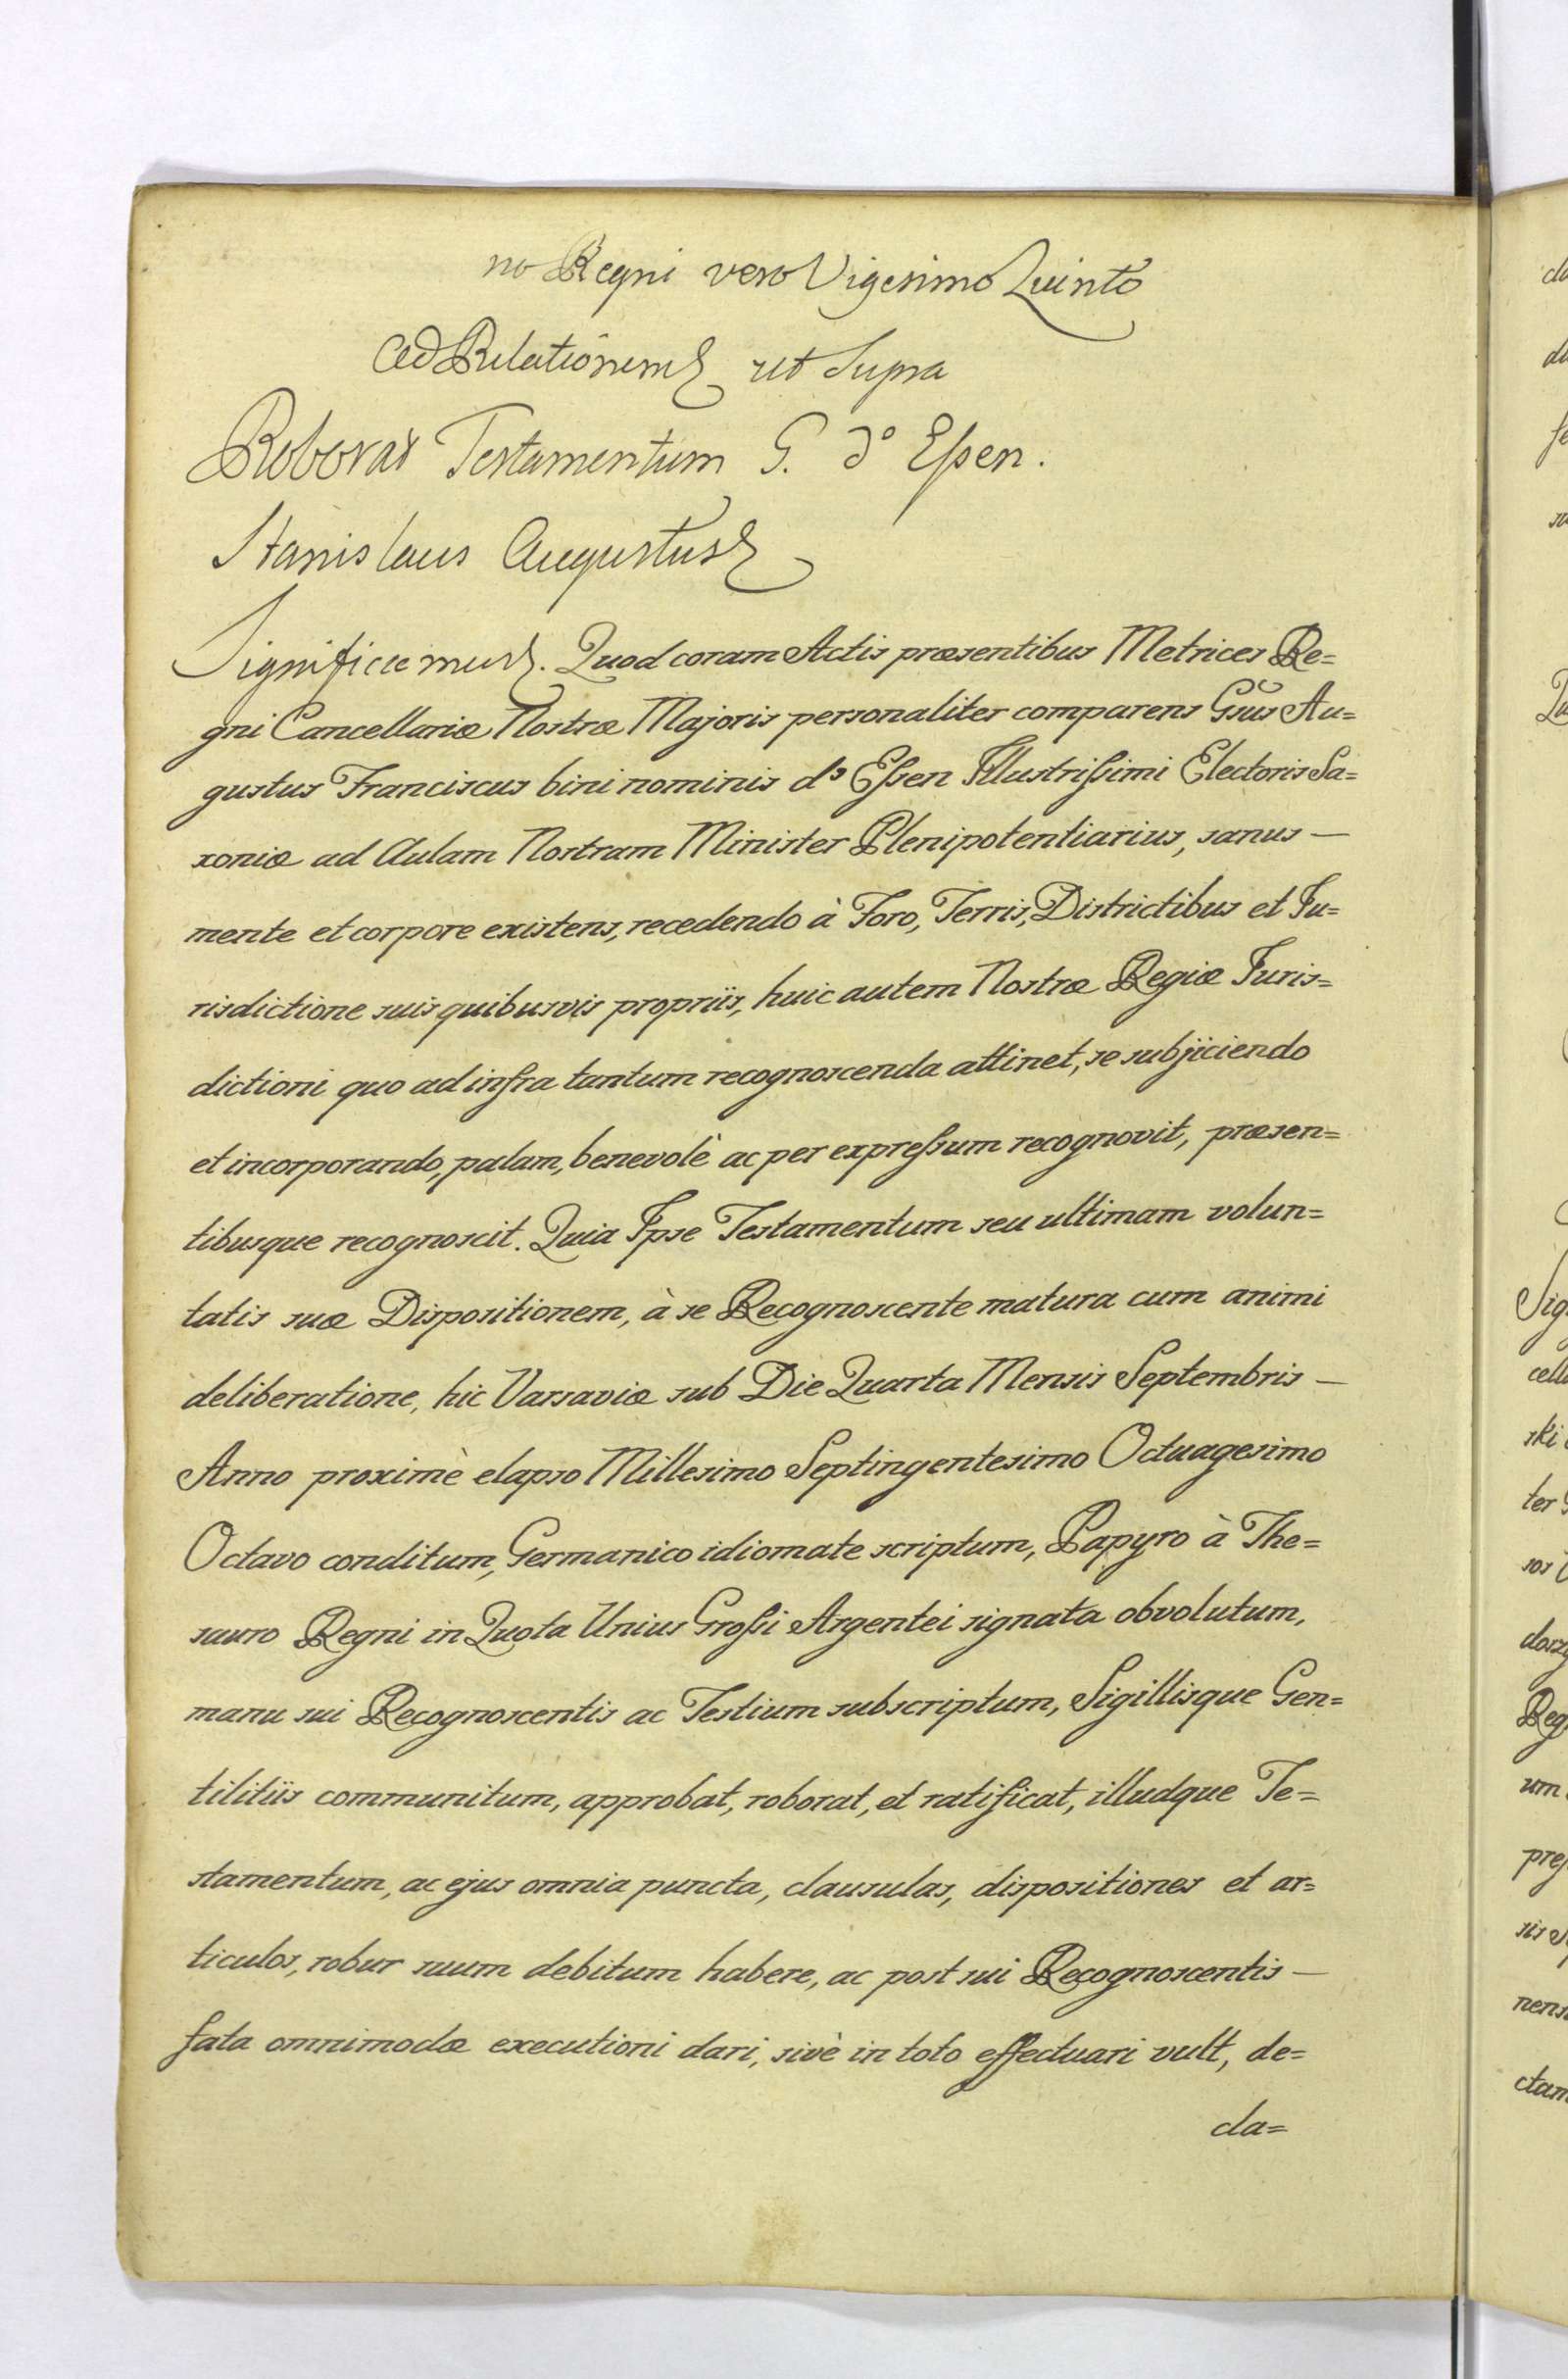 no Regni vero Vigesimo Quinto
Ad Relationem ut Supra
Roborat Testamentum G. d° Eßen.
Stanislaus Augustus
Significamus. Quod coram Actis præsentibus Metrices Re=
gni Cancellariæ Nostræ Majoris personaliter comparens Gsus Au=
gustus Franciscus bini nominis d° Eßen Illustrißimi Electoris Sa=
xoniæ ad Aulam Nostram Minister Plenipotentiarius, sanus —
mente et corpore existens, recedendo à Foro, Terris, Districtibus et Ju=
risdictione suis quibusvis propriis, huic autem Nostræ Regiæ Juris=
dictioni quo ad infra tantum recognoscenda attinet, se subjiciendo
et incorporando, palam, benevolè ac per expreßum recognovit, præsen=
tibusque recognoscit. Quia Ipse Testamentum seu ultimam volun=
tatis suæ Dispositionem, à se Recognoscente matura cum animi
deliberatione, hic Varsaviæ sub Die Quarta Mensis Septembris —
Anno proximè elapso Millesimo Septingentesimo Octuagesimo
Octavo conditum, Germanico idiomate scriptum, Papyro à The=
sauro Regni in Quota Unius Großi Argentei signata obvolutum,
manu sui Recognoscentis ac Testium subscriptum, Sigillisque Gen=
tilitiis communitum, approbat, roborat, et ratificat, illudque Te=
stamentum, ac ejus omnia puncta, clausulas, dispositiones et ar=
ticulos, robur suum debitum habere, ac post sui Recognoscentis —
fata omnimodæ executioni dari, sivè in toto effectuari vult, de=
cla=